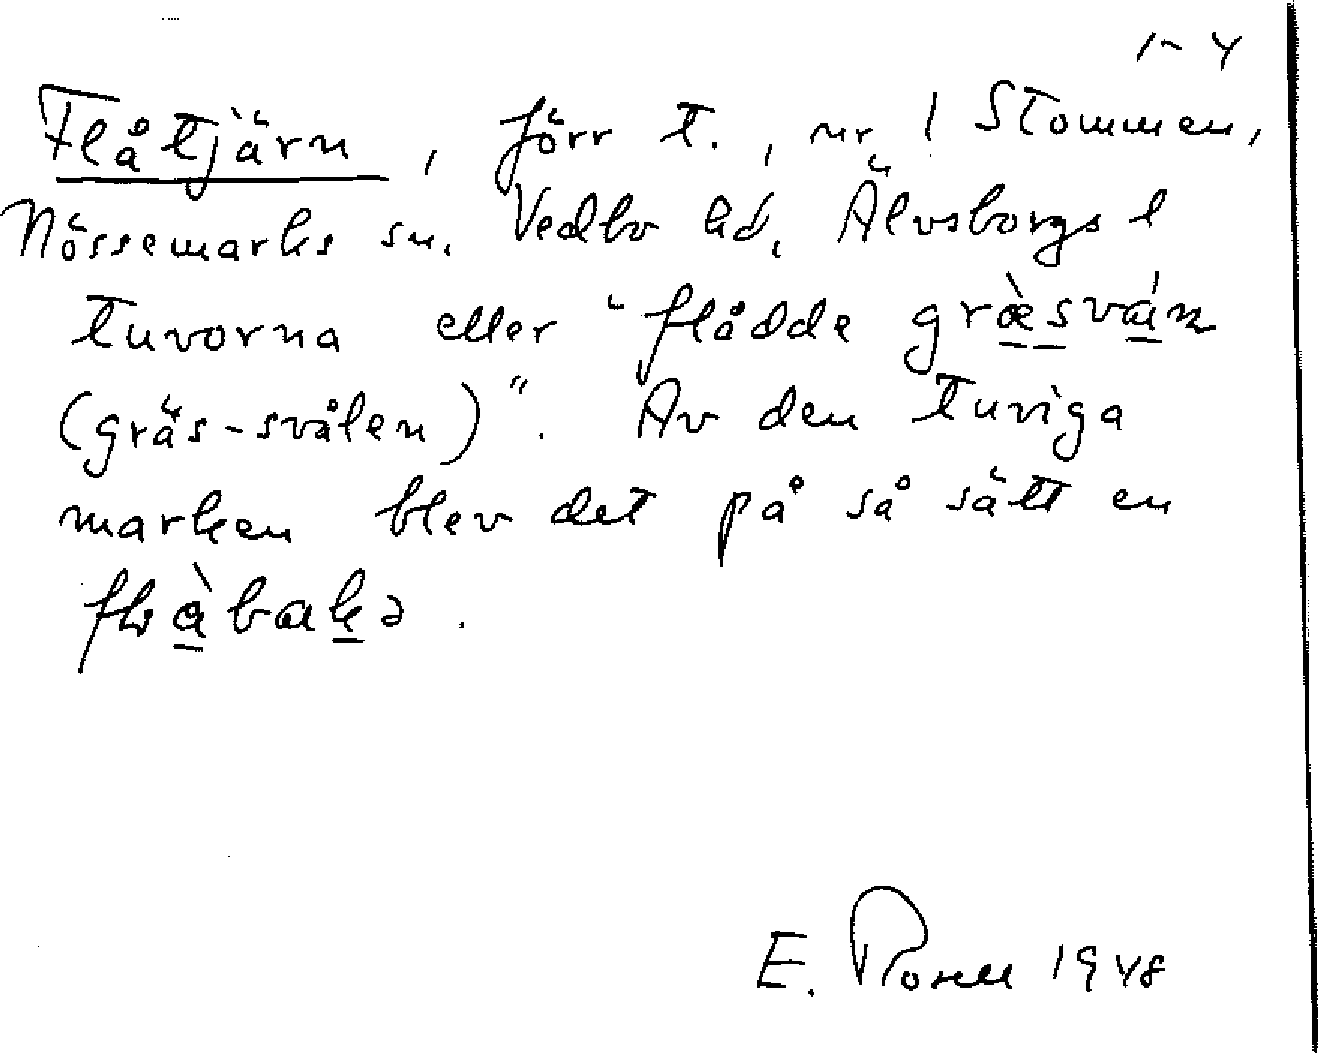 1-4
Flåtjärn, förr t., nr 1 Stommen,
Nössemarks sn. Vedbo hd, Älvsborgs l
tuvorna eller "flådde græ̀sván
(gräs-svålen)". Av den tuviga
marken blev det på så sätt en
flɷàbakə.
E. Rosell 1948